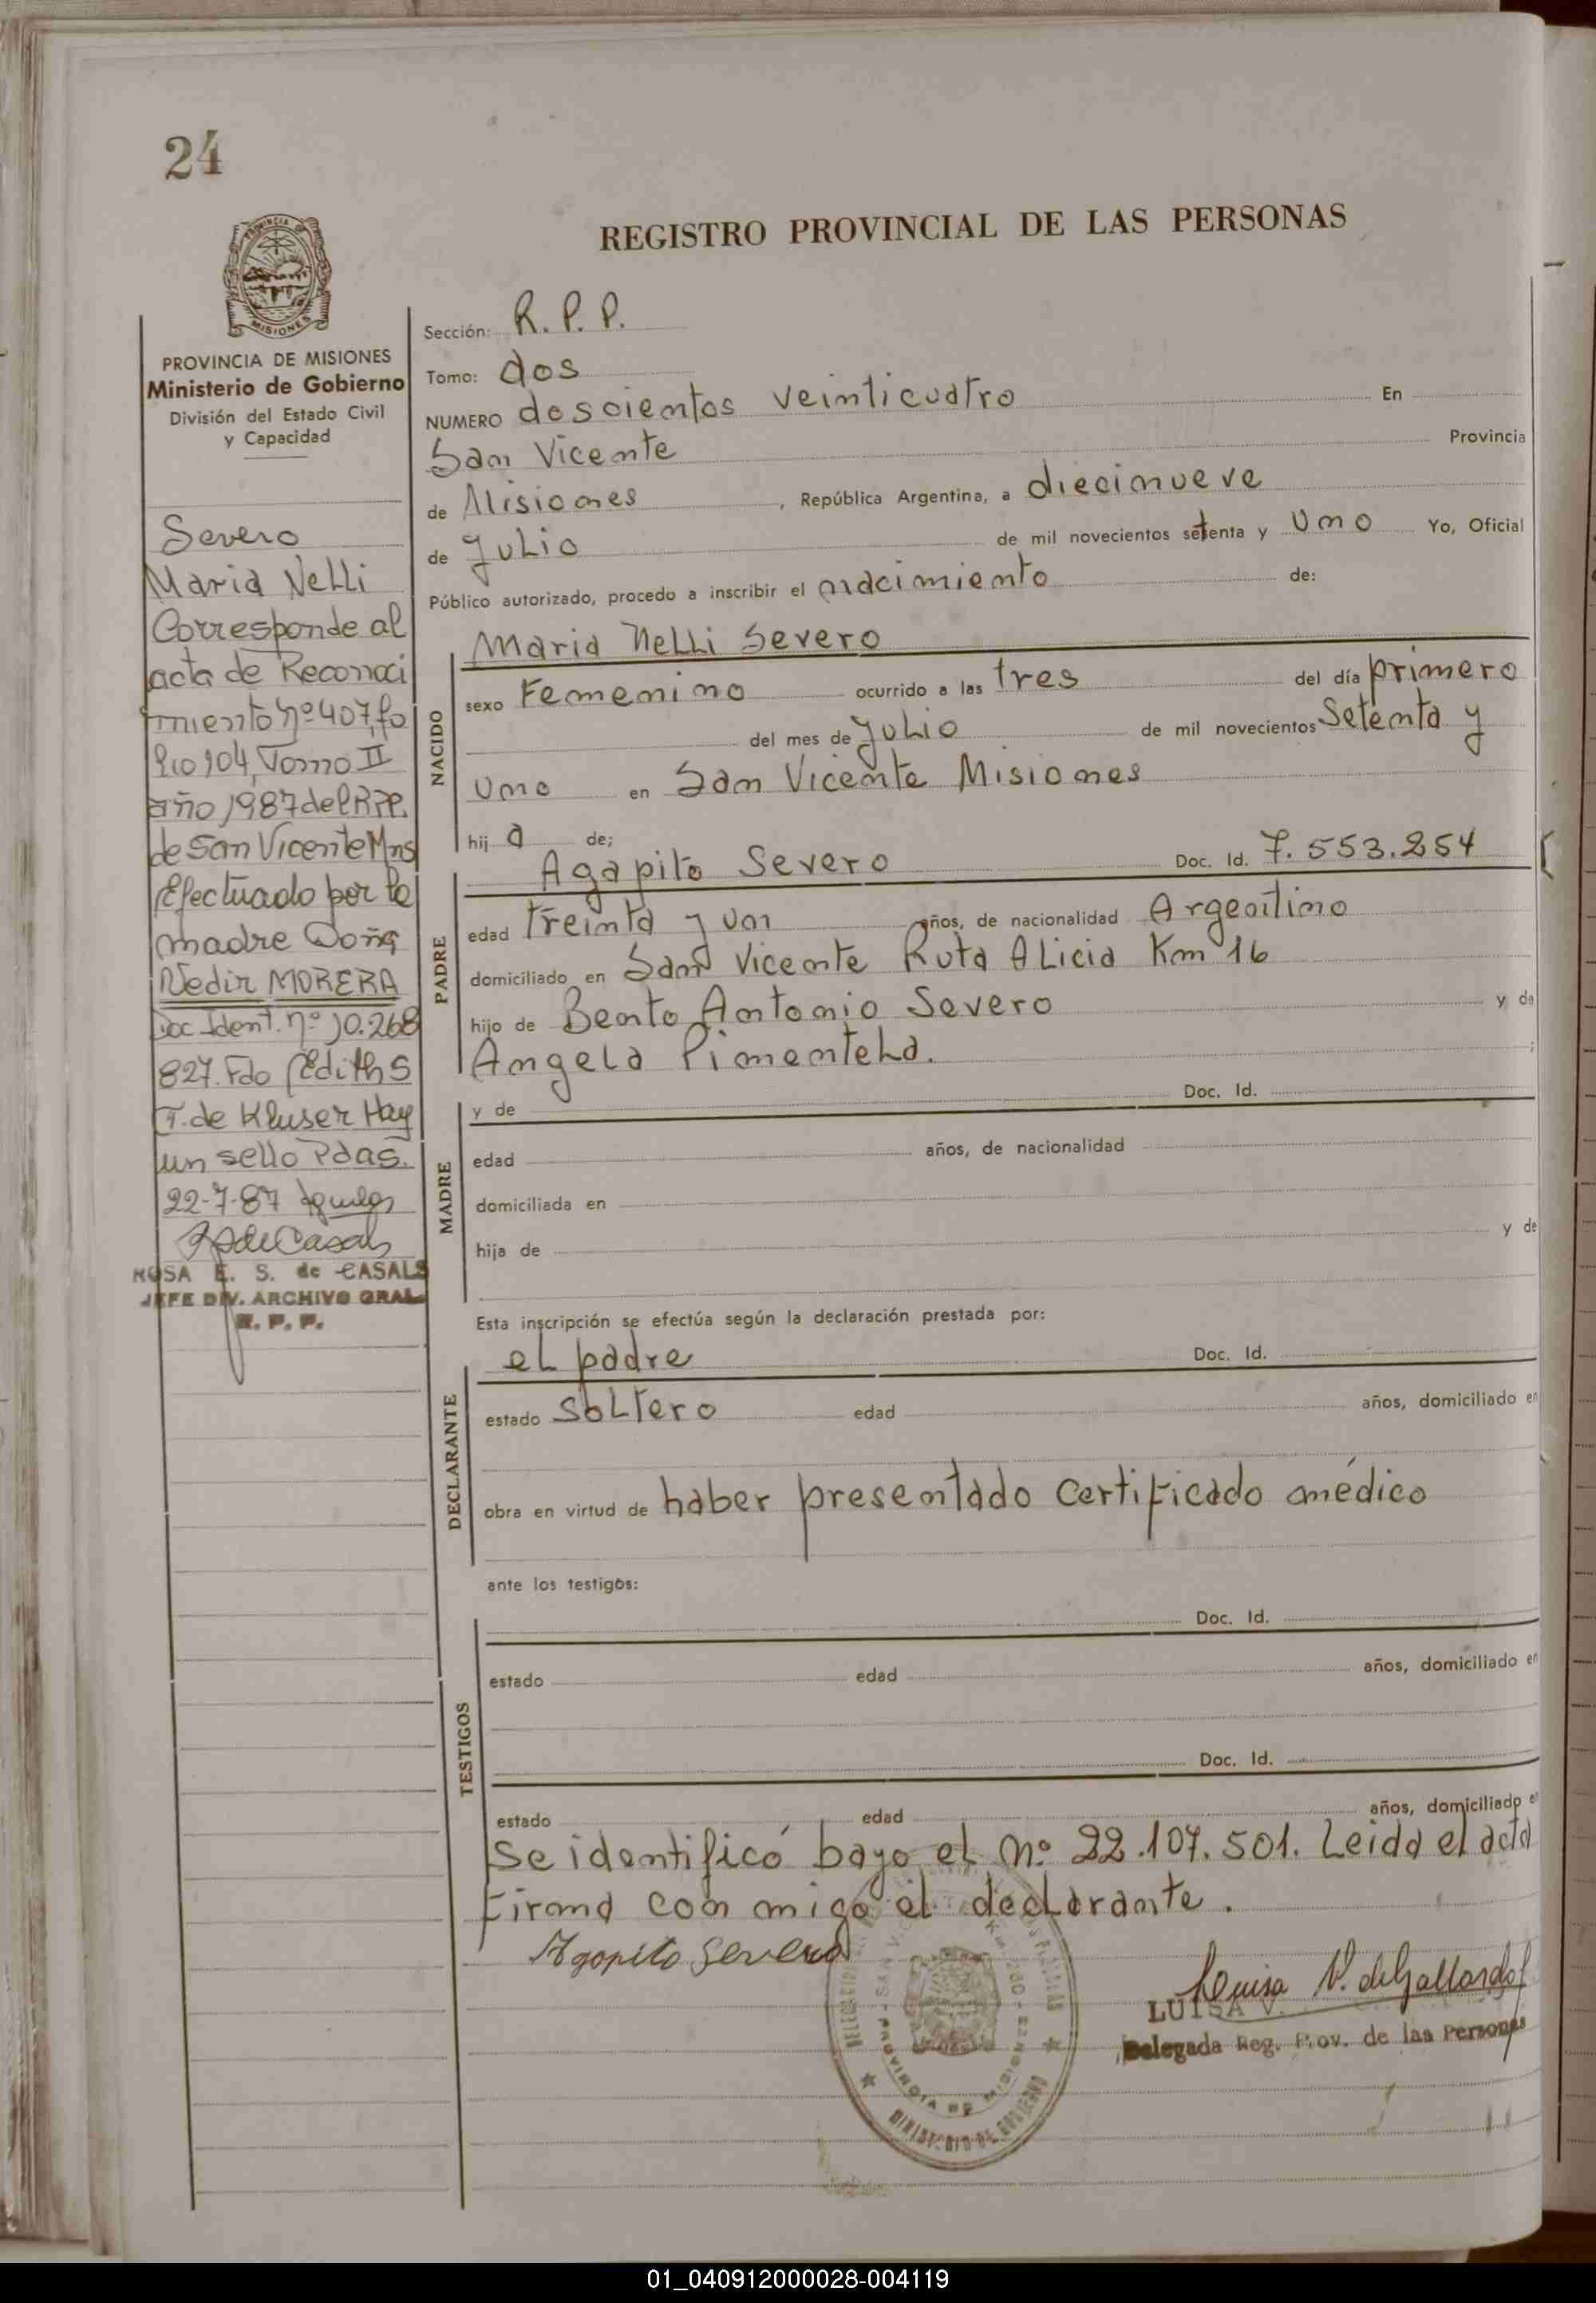 24
REGISTRO PROVINCIAL DE LAS PERSONAS
PROVINCIA DE MISIONES
Ministerio de Gobierno
División del Estado Civil
y Capacidad
Severo
Maria Nelli
Corresponde al
acta de Reconoci
miento nº 407, fo
lio 104, Tomo II
año 1987 del RPP.
de San Vicente Mns
Efectuado por la
madre Doña
Nedir MORERA
Doc Ident. nº 10.268
827. Fdo Edith S
T. de Kluser Hay
un sello Pdas.
22-7-87
R de Casals
ROSA E. S. de CASALS
JEFE DIV. ARCHIVO GRAL
R. P. P.
Sección: R. P. P.
Tomo: dos
NUMERO doscientos veinticuatro En
San Vicente Provincia
de Misiones, República Argentina, a diecinueve
de Julio de mil novecientos setenta y uno Yo, Oficial
Público autorizado, procedo a inscribir el nacimiento de:
NACIDO
Maria Nelli Severo
sexo Femenino ocurrido a las tres del día primero
del mes de Julio de mil novecientos Setenta y
uno en San Vicente Misiones
hij a de;
PADRE
Agapito Severo Doc. Id. 7.553.254
edad treinta y un años, de nacionalidad Argentino
domiciliado en San Vicente Ruta Alicia Km 16
hijo de Bento Antonio Severo y de
Angela Pimentela.
MADRE
y de Doc. Id.
edad años, de nacionalidad
domiciliada en
hija de y de
Esta inscripción se efectúa según la declaración prestada por:
DECLARANTE
el padre Doc. Id.
estado soltero edad años, domiciliado en
obra en virtud de haber presentado certificado médico
ante los testigos:
TESTIGOS
Doc. Id.
estado edad años, domiciliado en
Doc. Id.
estado edad años, domiciliado en
Se identificó bajo el nº 22.107.501. Leida el acta
Firma con migo el declarante.
Agapito Severo
Luisa V. de Gallardo
LUISA V.
Delegada Reg. Prov. de las Personas
PROVINCIA DE MISIONES
MINISTERIO DE GOBIERNO
01_040912000028-004119